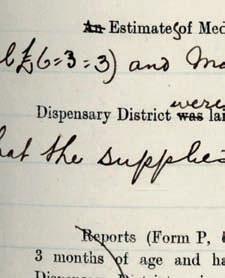 An Estimates of Med
£6=3=3) and Ma
were
Dispensary District was lai
hat the supplies
Reports (Form P,
3 months of age and ha